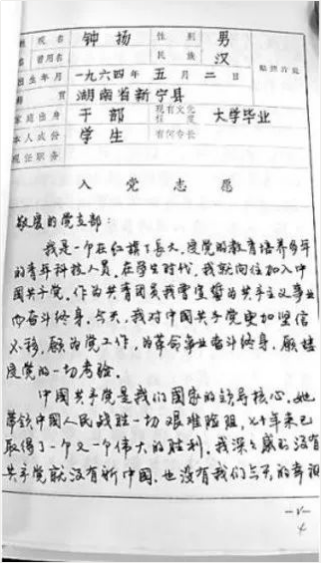 姓 现名 钟 扬 性别 男
名 曾用名 民族 汉
出生年月 一九六四年 五月 二日 贴照片处
籍贯 湖南省新宁县
家庭出身 干部 现有文化程度 大学毕业
本人成份 学生 有何专长
现任职务
入 党 志 愿
敬爱的党支部：
我是一个在红旗下长大、受党的教育培养多年
的青年科技人员。在学生时代，我就向往加入中
国共产党。作为共青团员我曾宣誓为共产主义事业
而奋斗终身。今天，我对中国共产党更加坚信
不移，愿为党工作，为革命事业奋斗终身，愿接
受党的一切考验。
中国共产党是我们国家的领导核心，她
带领中国人民战胜一切艰难险阻，七十年来已
取得了一个又一个伟大的胜利。我深深感到没有
共产党就没有新中国，也没有我们今天的幸福